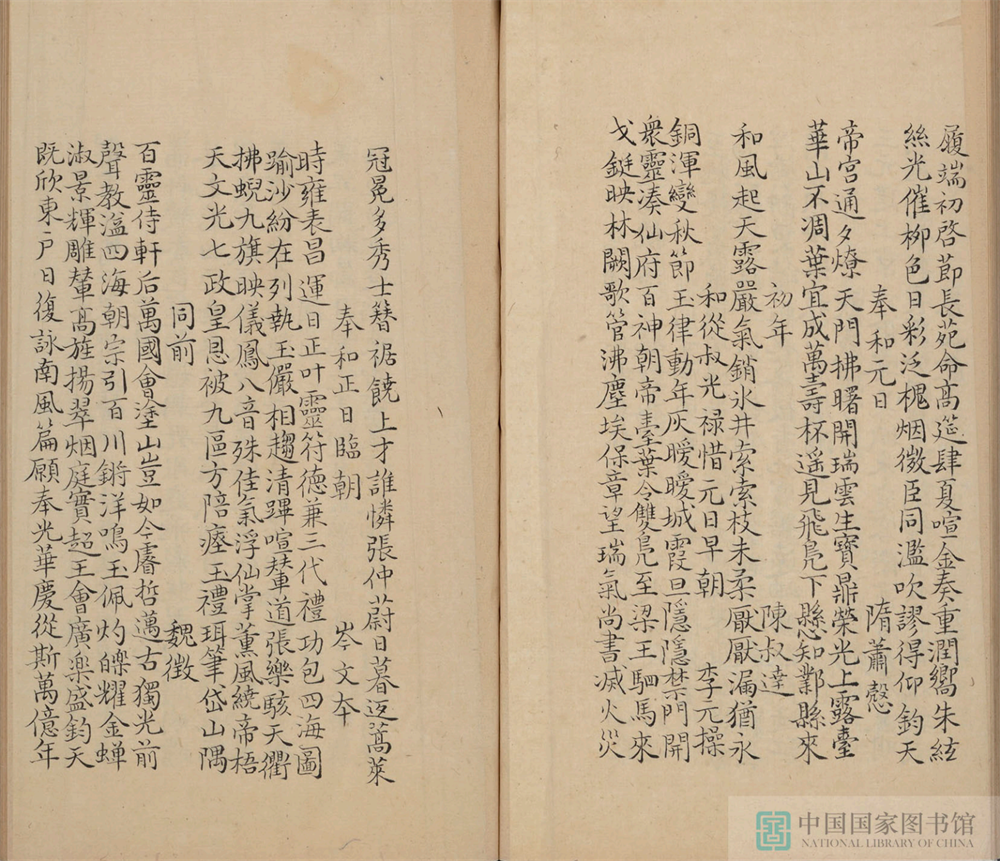 履端初啓節長苑命高筵肆夏喧金奏重潤嚮朱絃
絲光催柳色日彩泛槐烟微臣同濫吹謬得仰鈞天
奉和元日 隋蕭慤
帝宮通夕燎天門拂曙開瑞雲生寶鼎榮光上露臺
華山不凋葉宜成萬壽杯遥見飛鳧下懸知鄴縣來
初年 陳叔達
和風起天露嚴氣銷氷井索索枝未柔厭厭漏猶永
和從叔光禄惜元日早朝 李元操
銅渾變秋節玉律動年灰曖曖城霞旦隱隱禁門開
衆靈湊仙府百神朝帝臺葉令雙鳧至梁王駟馬來
戈鋋映林闕歌管沸塵埃保章望瑞氣尚書滅火災
冠冕多秀士簪裾饒上才誰憐張仲蔚日暮返蒿萊
奉和正日臨朝 岑文本
時雍表昌運日正叶靈符德兼三代禮功包四海圖
踰沙紛在列執玉儼相趨清蹕喧輦道張樂駭天衢
拂蜺九旗映儀鳳八音殊佳氣浮仙掌薰風繞帝梧
天文光七政皇恩被九區方陪瘞玉禮珥筆岱山隅
同前 魏徵
百靈侍軒后萬國會塗山豈如今睿哲邁古獨光前
聲教溢四海朝宗引百川鏘洋鳴玉佩灼皪耀金蟬
淑景輝雕輦高旌揚翠烟庭實超王會廣樂盛鈞天
既欣東户日復詠南風篇願奉光華慶從斯萬億年
中国国家图书馆
NATIONAL LIBRARY OF CHINA